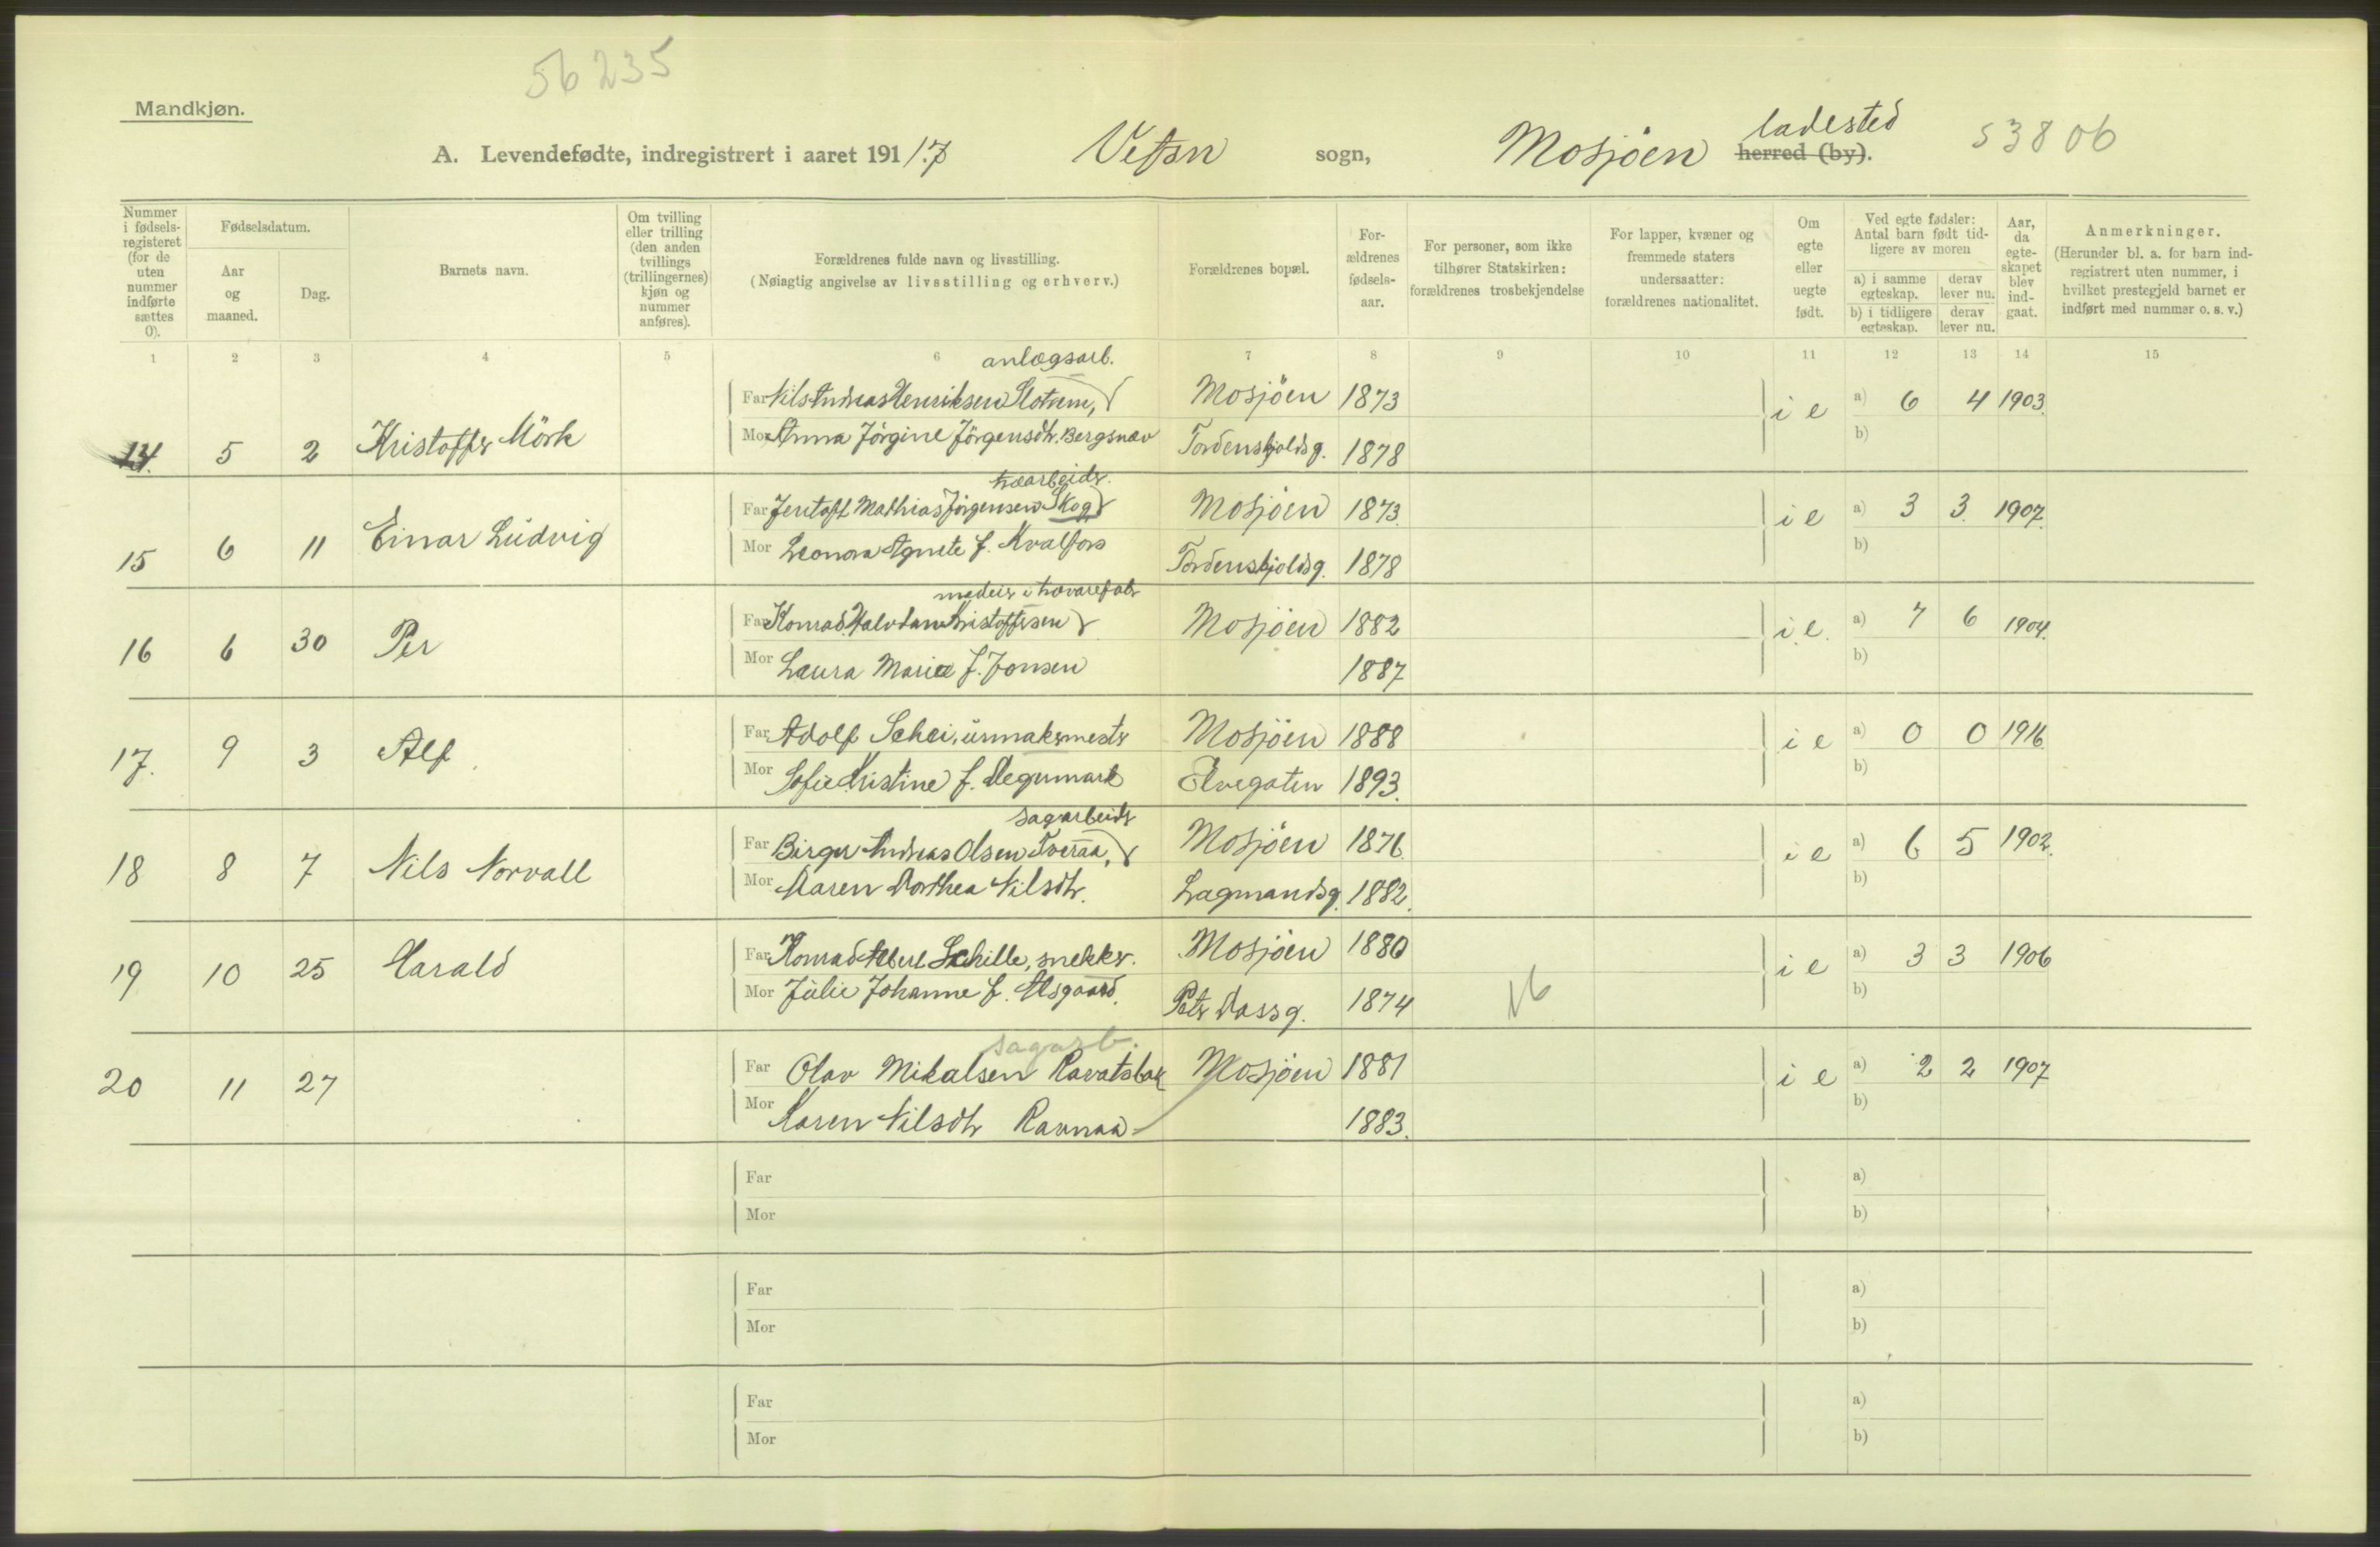 56235
Mandkjøn.
A. Levendefødte, indregistrert i aaret 1917 Vefsn sogn, Mosjöen ladested herred (by). 53806
Nummer i fødselsregisteret (for de uten nummer indførte sættes 0).
Fødselsdatum.
Aar og maaned.
Dag.
Barnets navn.
Om tvilling eller trilling (den anden tvillings (trillingernes) kjøn og nummer anføres).
Forældrenes fulde navn og livsstilling.
(Nøiagtig angivelse av livsstilling og erhverv.)
Forældrenes bopæl.
Forældrenes fødselsaar.
For personer, som ikke tilhører Statskirken: forældrenes trosbekjendelse
For lapper, kvæner og fremmede staters undersaatter: forældrenes nationalitet.
Om egte eller uegte født.
Ved egte fødsler: Antal barn født tidligere av moren
a) i samme egteskap.
derav lever nu.
b) i tidligere egteskap.
derav lever nu.
Aar, da egteskapet blev indgaat.
Anmerkninger.
(Herunder bl. a. for barn indregistrert uten nummer, i hvilket prestegjeld barnet er indført med nummer o. s. v.)
1 2 3 4 5 6 7 8 9 10 11 12 13 14 15
anlægsarb.
Far Nils Andreas Henriksen Slotnem, Mosjöen 1873 i e a) 6 4 1903
14. 5 2 Kristoffer Mörk
Mor Anna Jörgine Jörgensdtr. Bergsnæv Tordenskjoldsg. 1878 b)
træarbeider.
Far Jentoft Mathias Jörgensen Skog Mosjöen 1873. i e a) 3 3. 1907.
15 6 11 Einar Ludvig
Mor Leonora Agnete f. Kvalfors Tordenskjoldsg. 1878 b)
i trævarefabr
Far Konrad Halvdan Kristoffersen Mosjöen 1882 i e. a) 7 6 1904.
16 6 30 Per
Mor Laura Marie f. Jonsen 1887 b)
Far Adolf Schei, urmakermester Mosjöen 1888 i e a) 0 0 1916
17. 9 3 Alf
Mor Sofie Kristine f. Degermark Elvegaten 1893. b)
sagarbeider
Far Birger Andreas Olsen Tveraa, Mosjöen 1876. i e a) 6 5 1902.
18 8 7 Nils Norvall
Mor Maren Dorthea Nilsdtr. Lagmandsg. 1882. b)
Far Konrad Albert Schille, snekker. Mosjöen 1880 i e a) 3 3 1906
19 10 25 Harald
Mor Julie Johanne f. Alsgaard. Peter Dassg. 1874 b)
sagarb.
Far Olav Mikalsen Ravatsbak Mosjöen 1881 i e a) 2 2 1907
20 11 27
Mor Karen Nilsdtr Ravnaa 1883. b)
Far a)
Mor b)
Far a)
Mor b)
Far a)
Mor b)